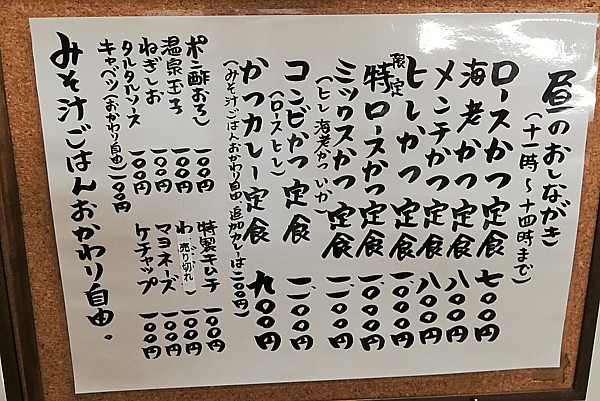 昼のおしながき
(十一時～十四時まで)
ロースかつ定食 七〇〇円
海老かつ定食 八〇〇円
メンチかつ定食 八〇〇円
ヒレかつ定食 一、〇〇〇円
限定 特ロースかつ定食 一、〇〇〇円
ミックスかつ定食 一、二〇〇円
(ヒレ 海老かつ いか)
コンビかつ定食 一、二〇〇円
(ロースヒレ)
かつカレー定食 九〇〇円
(みそ汁ごはんおかわり自由、追加カレーは二〇〇円)
ポン酢おろし 一〇〇円
温泉玉子 一〇〇円
ねぎしお 一〇〇円
タルタルソース 一〇〇円
キャベツ(おかわり自由) 一〇〇円
特製キムチ 一〇〇円
わ 売り切れ 一〇〇円
マヨネーズ 一〇〇円
ケチャップ 一〇〇円
みそ汁ごはんおかわり自由。